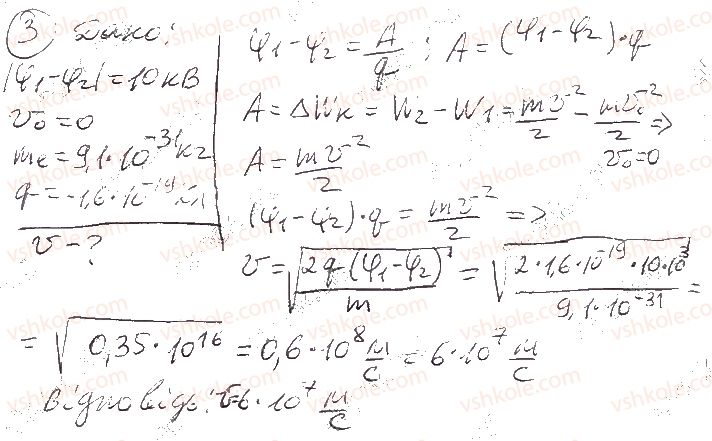 3 Дано:
|φ₁-φ₂|=10кВ
v₀=0
mₑ=9,1·10⁻³¹кг
q=-1,6·10⁻¹⁹Кл
v-?
φ₁-φ₂=A/q; A=(φ₁-φ₂)·q
A=ΔWк=W₂-W₁=mv²/2-mv₀²/2=>
v₀=0
A=mv²/2
(φ₁-φ₂)·q=mv²/2=>
v=√(2q(φ₁-φ₂)/m)=√(2·1,6·10⁻¹⁹·10·10³/9,1·10⁻³¹)=
=√(0,35·10¹⁶)=0,6·10⁸м/с=6·10⁷м/с
Відповідь: v=6·10⁷м/с
vshkole.com